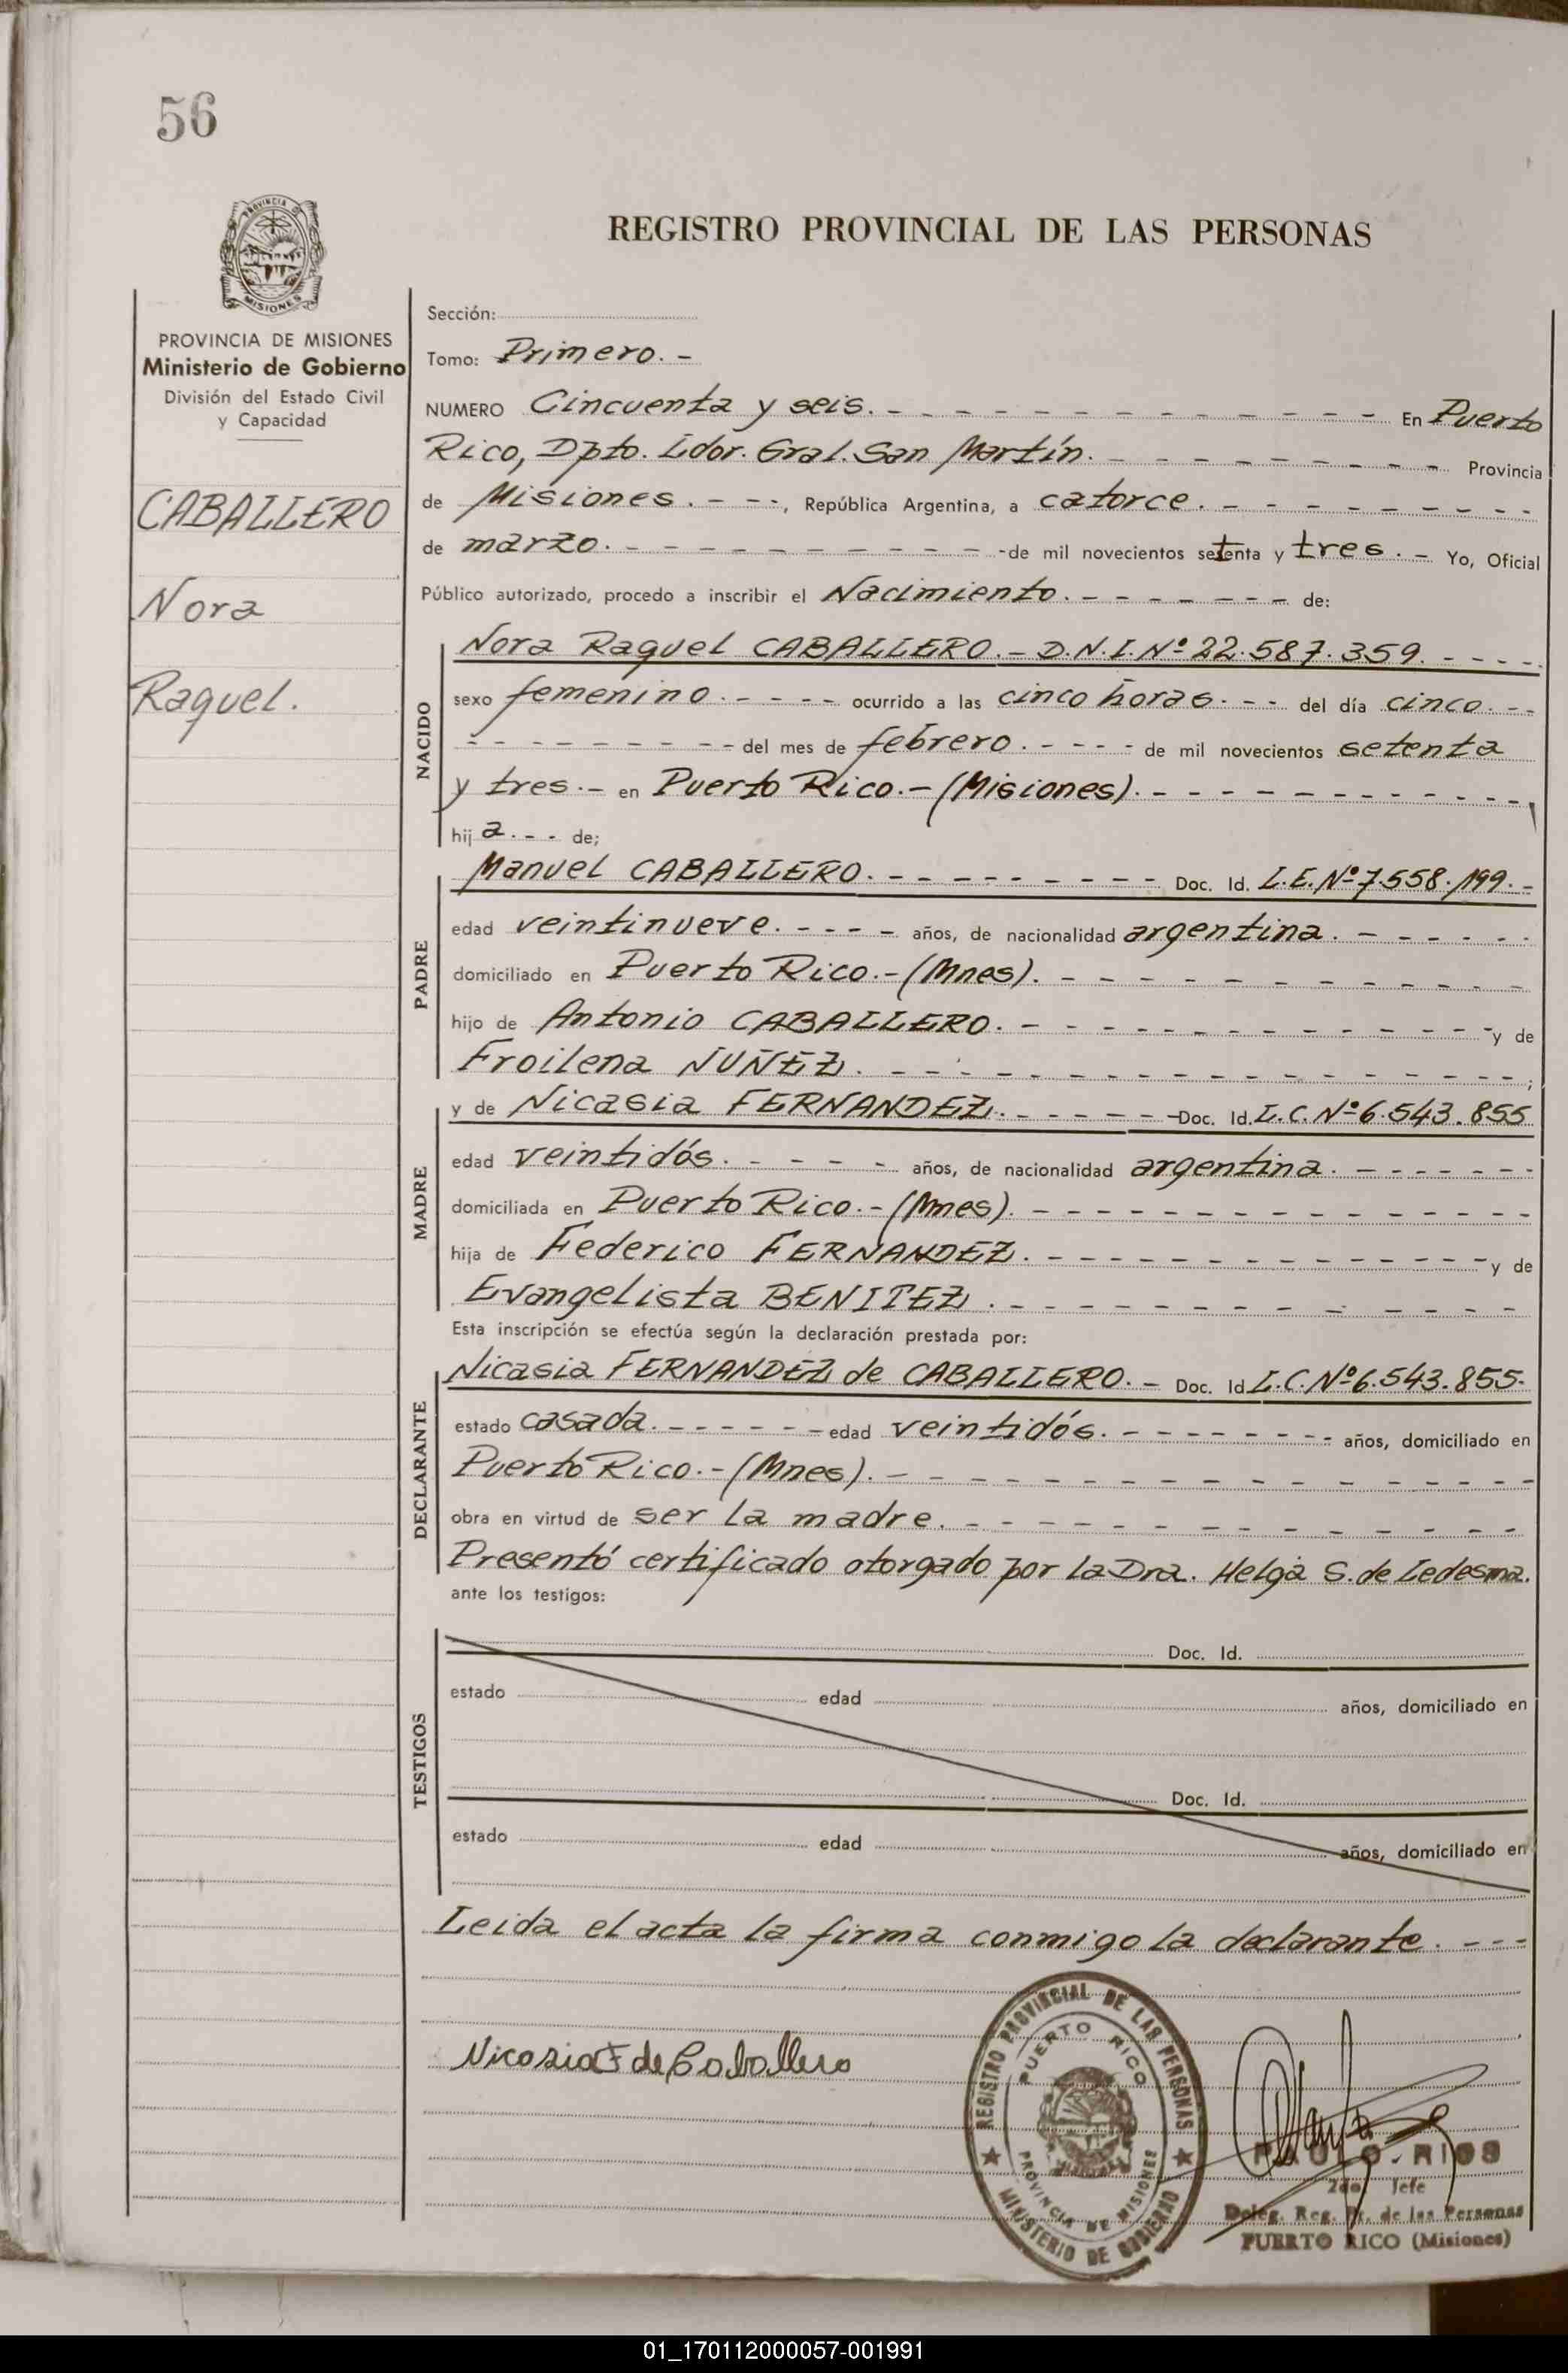 56
PROVINCIA DE
MISIONES
REGISTRO PROVINCIAL DE LAS PERSONAS
PROVINCIA DE MISIONES
Ministerio de Gobierno
División del Estado Civil
y Capacidad
CABALLERO
Nora
Raquel.
Sección:
Tomo: Primero. -
NUMERO Cincuenta y seis. - - - - - - - - - - - - En Puerto
Rico, Dpto. Ldor. Gral. San Martín. - - - - - - - - - Provincia
de Misiones. - - -, República Argentina, a catorce. - - - - - - - - -
de marzo. - - - - - - - - - - - de mil novecientos setenta y tres. - Yo, Oficial
Público autorizado, procedo a inscribir el Nacimiento. - - - - - - - de:
NACIDO
Nora Raquel CABALLERO. - D.N.I. Nº 22.587.359. - - - -
sexo femenino. - - - - ocurrido a las cinco horas. - - - del día cinco. - -
- - - - - - - - - del mes de febrero. - - - - de mil novecientos setenta
y tres. - en Puerto Rico. - (Misiones). - - - - - - - - - - - -,
hij a. - - - de;
PADRE
Manuel CABALLERO. - - - - - - - - - Doc. Id. L.E. Nº 7.558.199. -
edad veintinueve. - - - - años, de nacionalidad argentina. - - - - - -
domiciliado en Puerto Rico. - (Mnes). - - - - - - - - - - -
hijo de Antonio CABALLERO. - - - - - - - - - - - - y de
Froilena NUÑEZ. - - - - - - - - - - - - - - - - - ;
MADRE
y de Nicasia FERNANDEZ. - - - - - - Doc. Id. L.C. Nº 6.543.855
edad veintidós. - - - - - años, de nacionalidad argentina. - - - - - - -
domiciliada en Puerto Rico. - (Mnes). - - - - - - - - - - - - -
hija de Federico FERNANDEZ. - - - - - - - - - - - y de
Evangelista BENITEZ. - - - - - - - - - - - - -
Esta inscripción se efectúa según la declaración prestada por:
DECLARANTE
Nicasia FERNANDEZ de CABALLERO. - Doc. Id. L.C. Nº 6.543.855-
estado casada. - - - - - - edad veintidós. - - - - - - - - - años, domiciliado en
Puerto Rico. - (Mnes). - - - - - - - - - - - - - - - -
obra en virtud de ser la madre. - - - - - - - - - - - - - -
Presentó certificado otorgado por la Dra. Helga S. de Ledesma.
ante los testigos:
TESTIGOS
Doc. Id.
estado edad años, domiciliado en
Doc. Id.
estado edad años, domiciliado en
Leida el acta la firma conmigo la declarante. - - -
Nicasia F de Caballero
REGISTRO PROVINCIAL DE LAS PERSONAS
PUERTO RICO
PROVINCIA DE MISIONES
MINISTERIO DE GOBIERNO
RIOS
2do Jefe
Deleg. Reg. Pr. de las Personas
PUERTO RICO (Misiones)
01_170112000057-001991